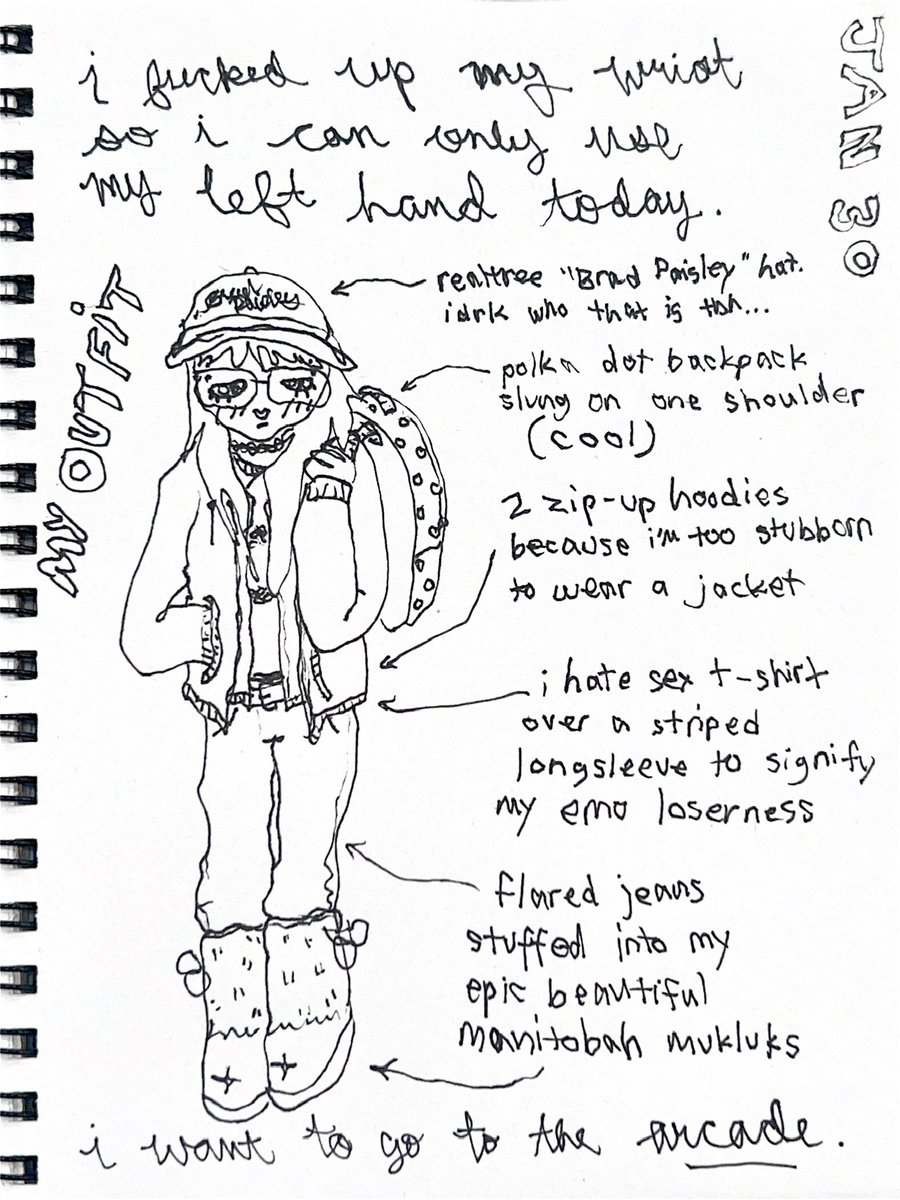 JAN 30
i fucked up my wrist
so i can only use
my left hand today.
MY OUTFIT
realtree "Brad Paisley" hat.
idrk who that is tbh...
Brad
Paisley
polka dot backpack
slung on one shoulder
(cool)
2 zip-up hoodies
because i'm too stubborn
to wear a jacket
i hate sex t-shirt
over a striped
longsleeve to signify
my emo loserness
flared jeans
stuffed into my
epic beautiful
manitobah mukluks
i want to go to the arcade.